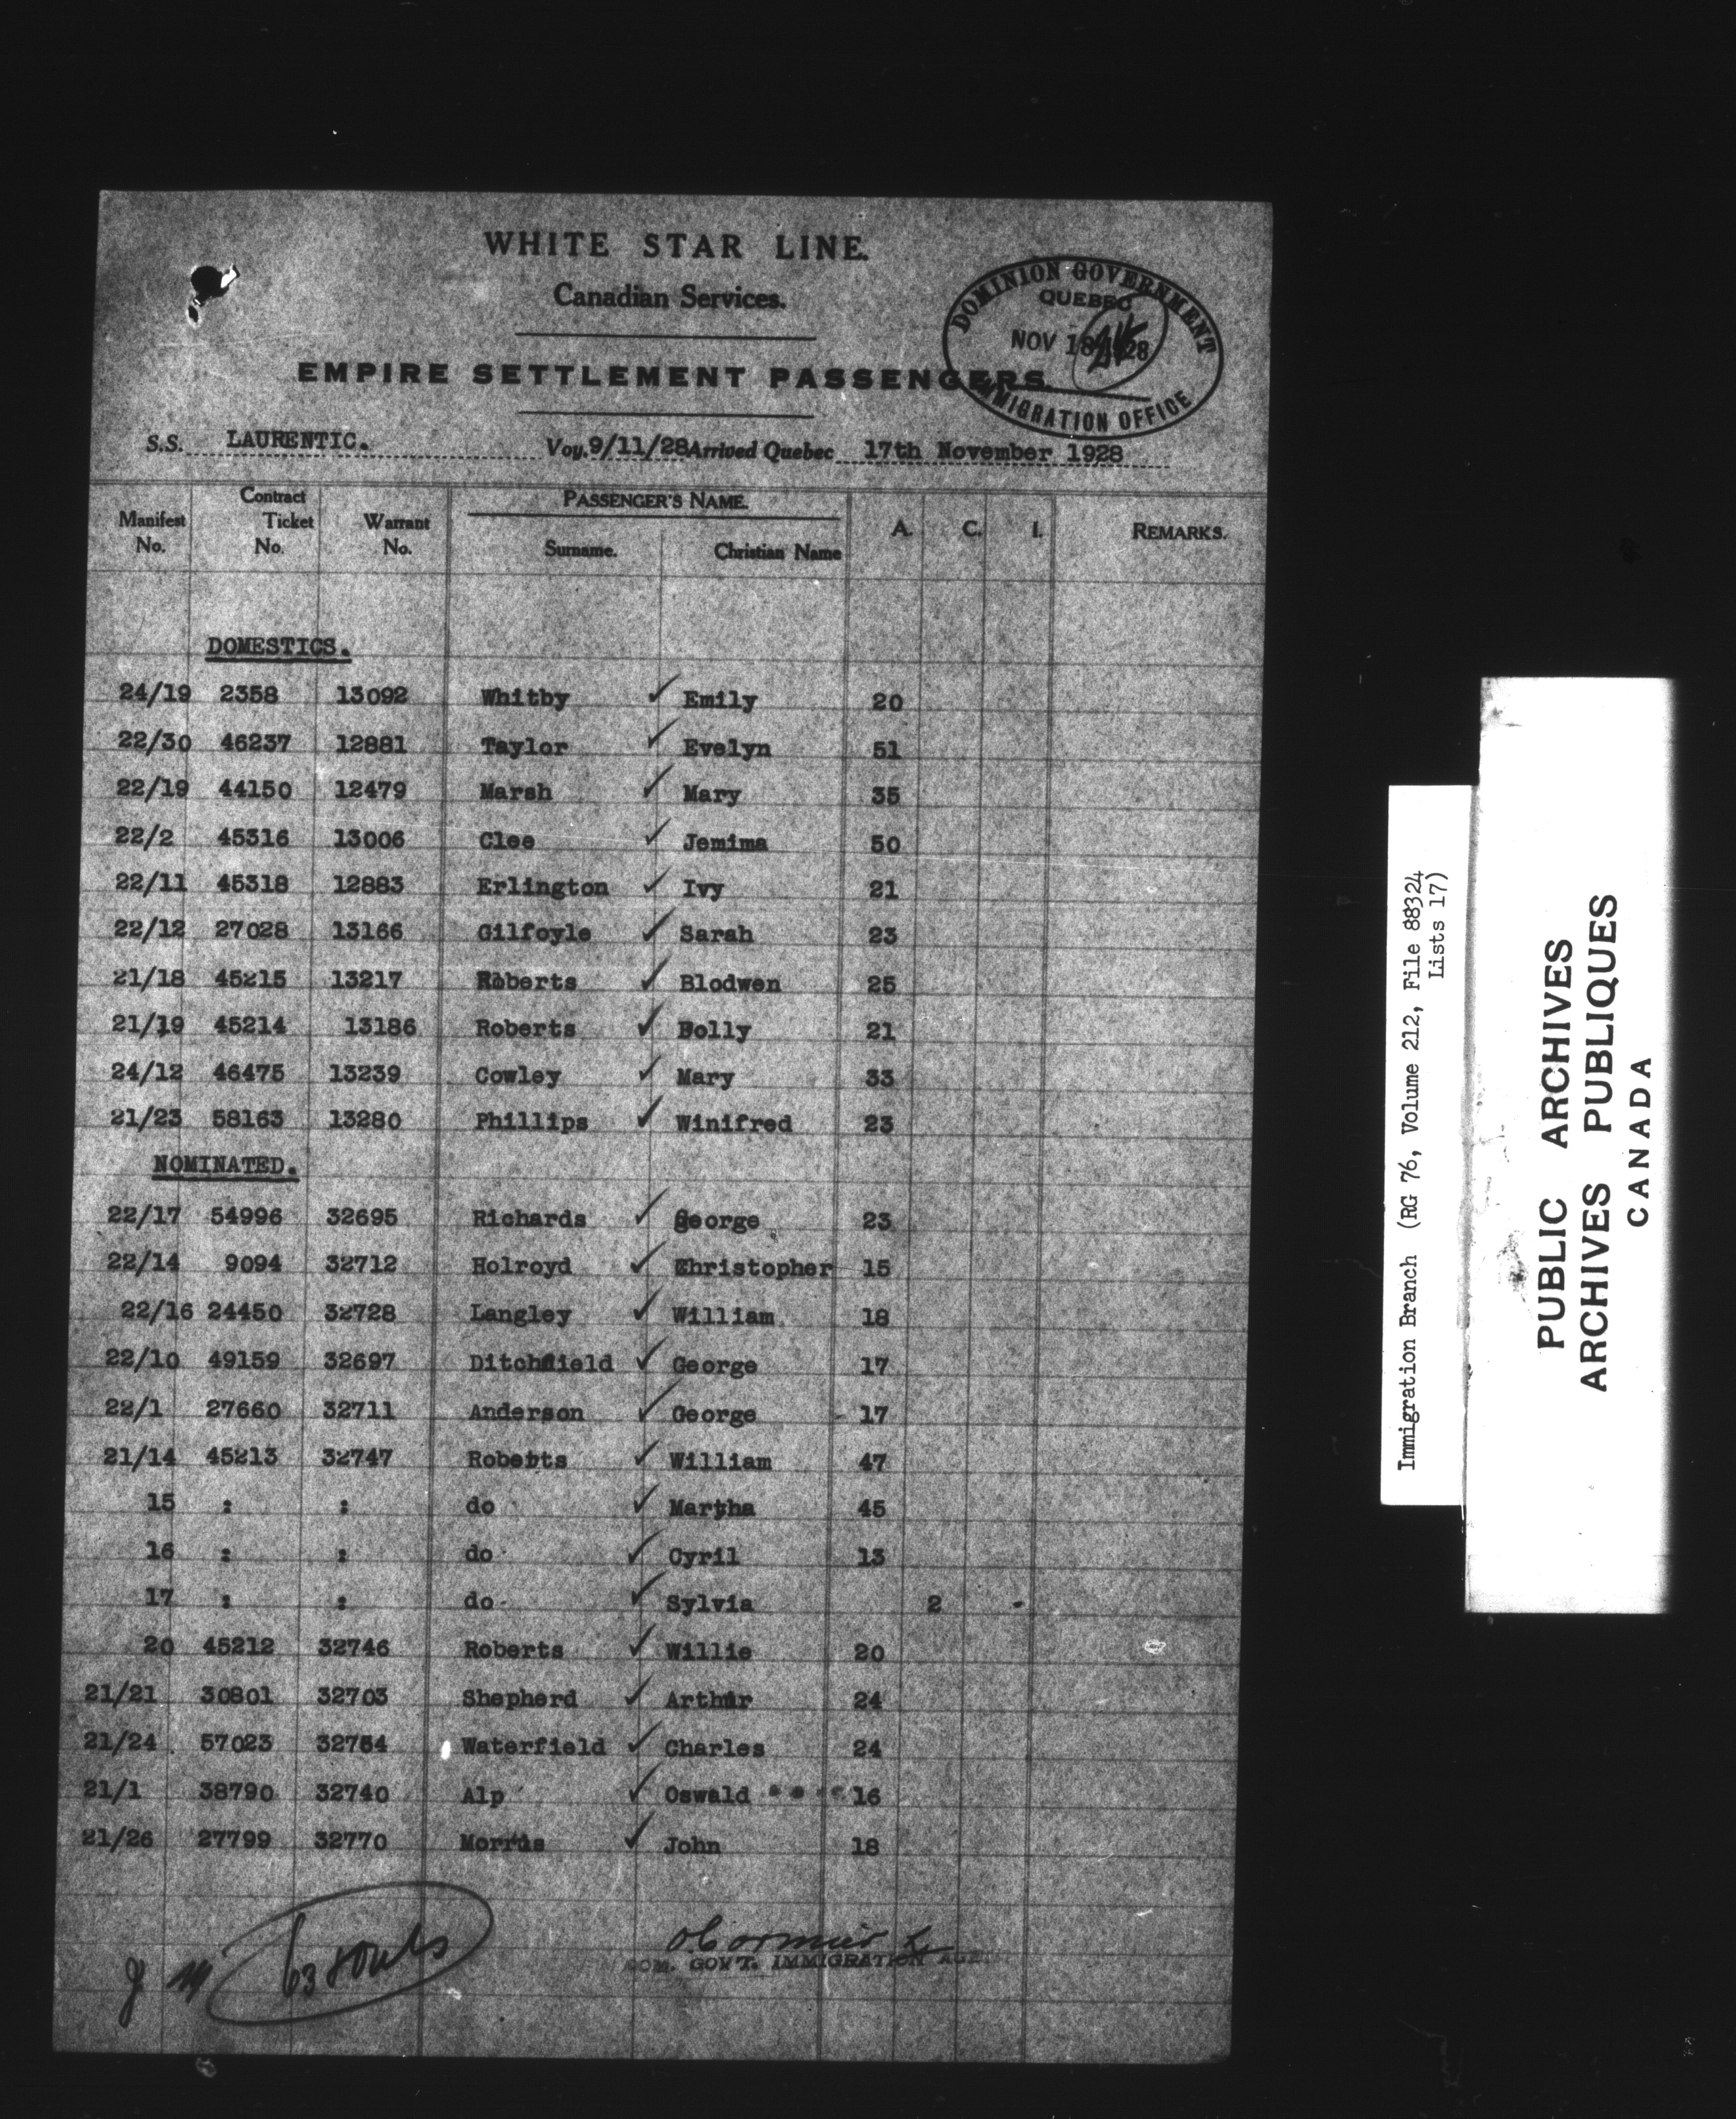 WHITE STAR LINE.
Canadian Services.
EMPIRE SETTLEMENT PASSENGERS.
DOMINION GOVERNMENT
QUEBEC
NOV 18 1928
IMMIGRATION OFFICE
S.S. LAURENTIC. Voy. 9/11/28 Arrived Quebec 17th November 1928
Manifest No. Contract Ticket No. Warrant No. PASSENGER'S NAME. Surname. Christian Name A. C. I. REMARKS.
DOMESTICS.
24/19 2358 13092 Whitby ✓ Emily 20
22/30 46237 12881 Taylor ✓ Evelyn 51
22/19 44150 12479 Marsh ✓ Mary 35
22/2 45316 13006 Clee ✓ Jemima 50
22/11 45318 12883 Erlington ✓ Ivy 21
22/12 27028 13166 Gilfoyle ✓ Sarah 23
21/18 45215 13217 Roberts ✓ Blodwen 25
21/19 45214 13186 Roberts ✓ Dolly 21
24/12 46475 13239 Cowley ✓ Mary 33
21/23 58163 13280 Phillips ✓ Winifred 23
NOMINATED.
22/17 54996 32695 Richards ✓ George 23
22/14 9094 32712 Holroyd ✓ Christopher 15
22/16 24450 32728 Langley ✓ William 18
22/10 49159 32697 Ditchfield ✓ George 17
22/1 27660 32711 Anderson ✓ George - 17
21/14 45213 32747 Roberts ✓ William 47
15 : : do ✓ Martha 45
16 : : do ✓ Cyril 13
17 : : do ✓ Sylvia 2
20 45212 32746 Roberts ✓ Willie 20
21/21 30801 32703 Shepherd ✓ Arthur 24
21/24 57023 32754 Waterfield ✓ Charles 24
21/1 38790 32740 Alp ✓ Oswald 16
21/26 27799 32770 Morris ✓ John 18
63 souls
O Cormier
DOM. GOVT. IMMIGRATION AGENT
Immigration Branch (RG 76, Volume 212, File 88324
Lists 17)
PUBLIC ARCHIVES
ARCHIVES PUBLIQUES
CANADA